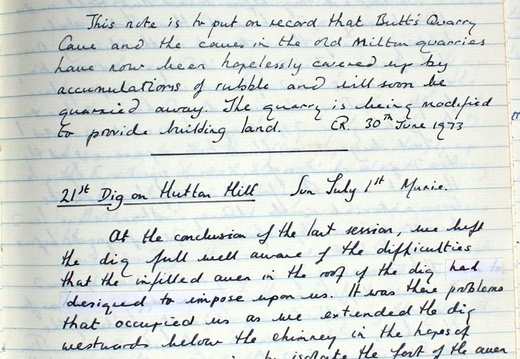 This note is to put on record that Butt's Quarry
Cave and the caves in the old Milton quarries
have now been hopelessly covered up by
accumulations of rubble and will soon be
quarried away. The quarry is being modified
to provide building land. CR. 30th June 1973
21st Dig on Hutton Hill Sun July 1st Murie.
At the conclusion of the last session, we left
the dig full well aware of the difficulties
that the infilled aven in the roof of the dig had
designed to impose upon us. It was these problems
that occupied us as we extended the dig
westwards below the chimney in the hopes of
isolate the foot of the aven